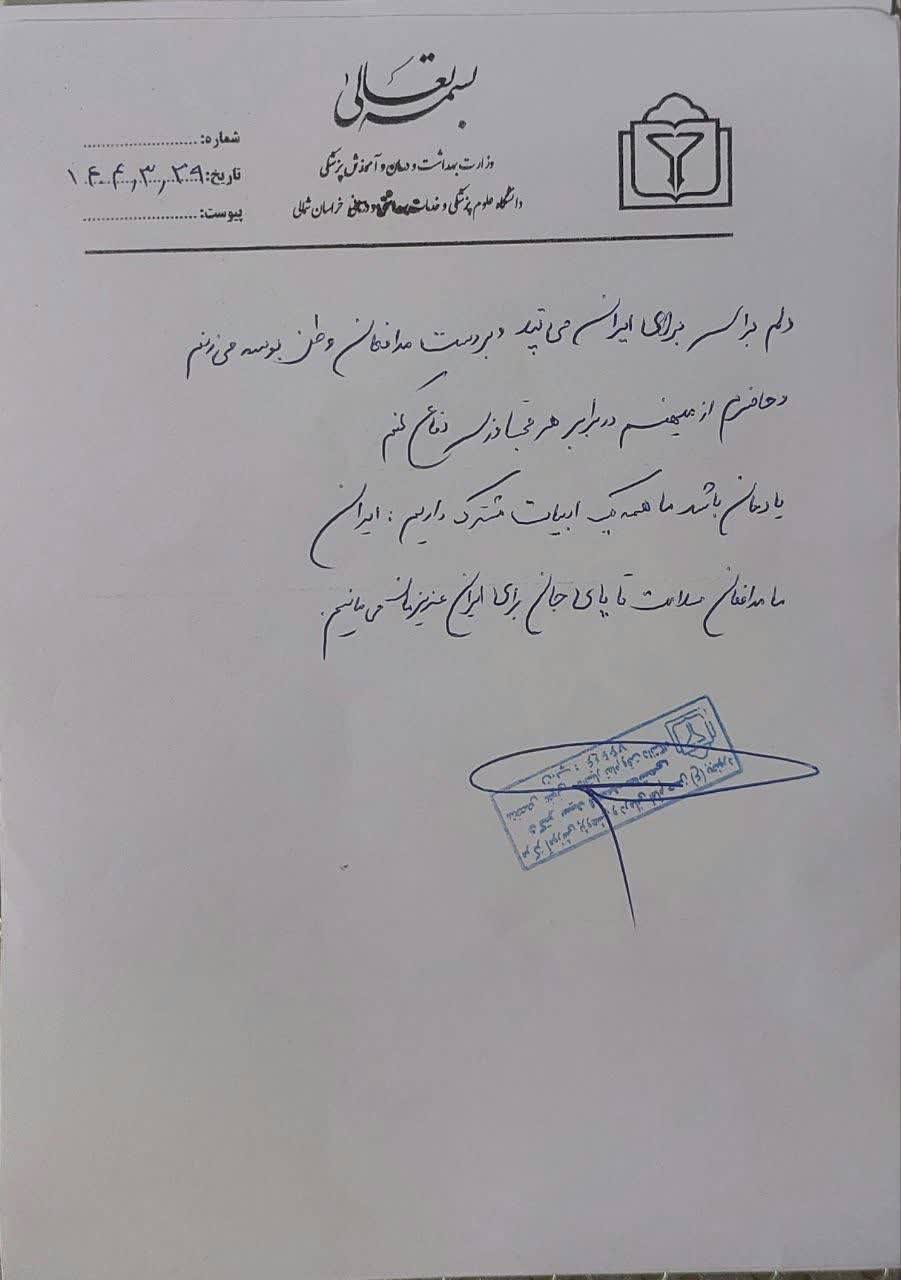 بسمه تعالی
وزارت بهداشت و درمان و آموزش پزشکی
دانشگاه علوم پزشکی و خدمات بهداشتی و درمانی خراسان شمالی
شماره:
تاریخ: ۱۴۰۴,۳,۲۹
پیوست:
دلم برای برای ایران می‌تپد و بر دست مدافعان وطن بوسه می‌زنم
و حاضرم از میهنم در برابر هر تجاوزی دفاع کنم
یادمان باشد ما همه یک ابیات مشترک داریم : ایران
ما مدافعان سلامت تا پای جان برای ایران عزیزمان می‌مانیم.